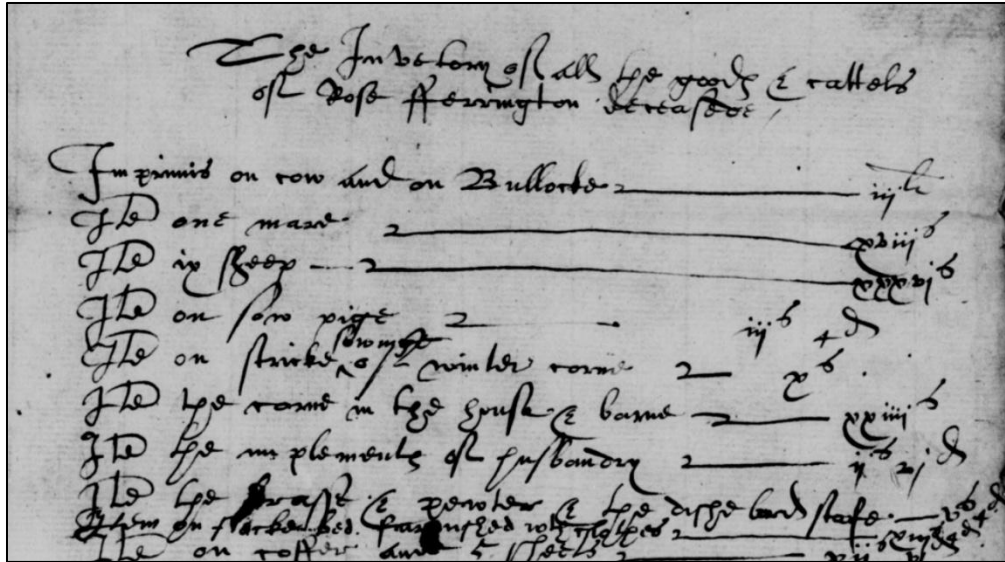 The Invetory of all the goods & cattels
of Rose fferrington deceassde
Imprimis on cow and on Bullocke iij li
Ite one mare xviij s
Ite ix sheep xxxvj s
Ite on sow pige iij s 4 d
Ite on stricke sowinge of winter corne x s
Ite the corne in the house & barne xxiiij s
Ite the implements of husbandry ij s vj d
Ite the brasse & pewter & the dishe bord stafe
Item on bed furnushed with
Ite on coffer and 5 sheets